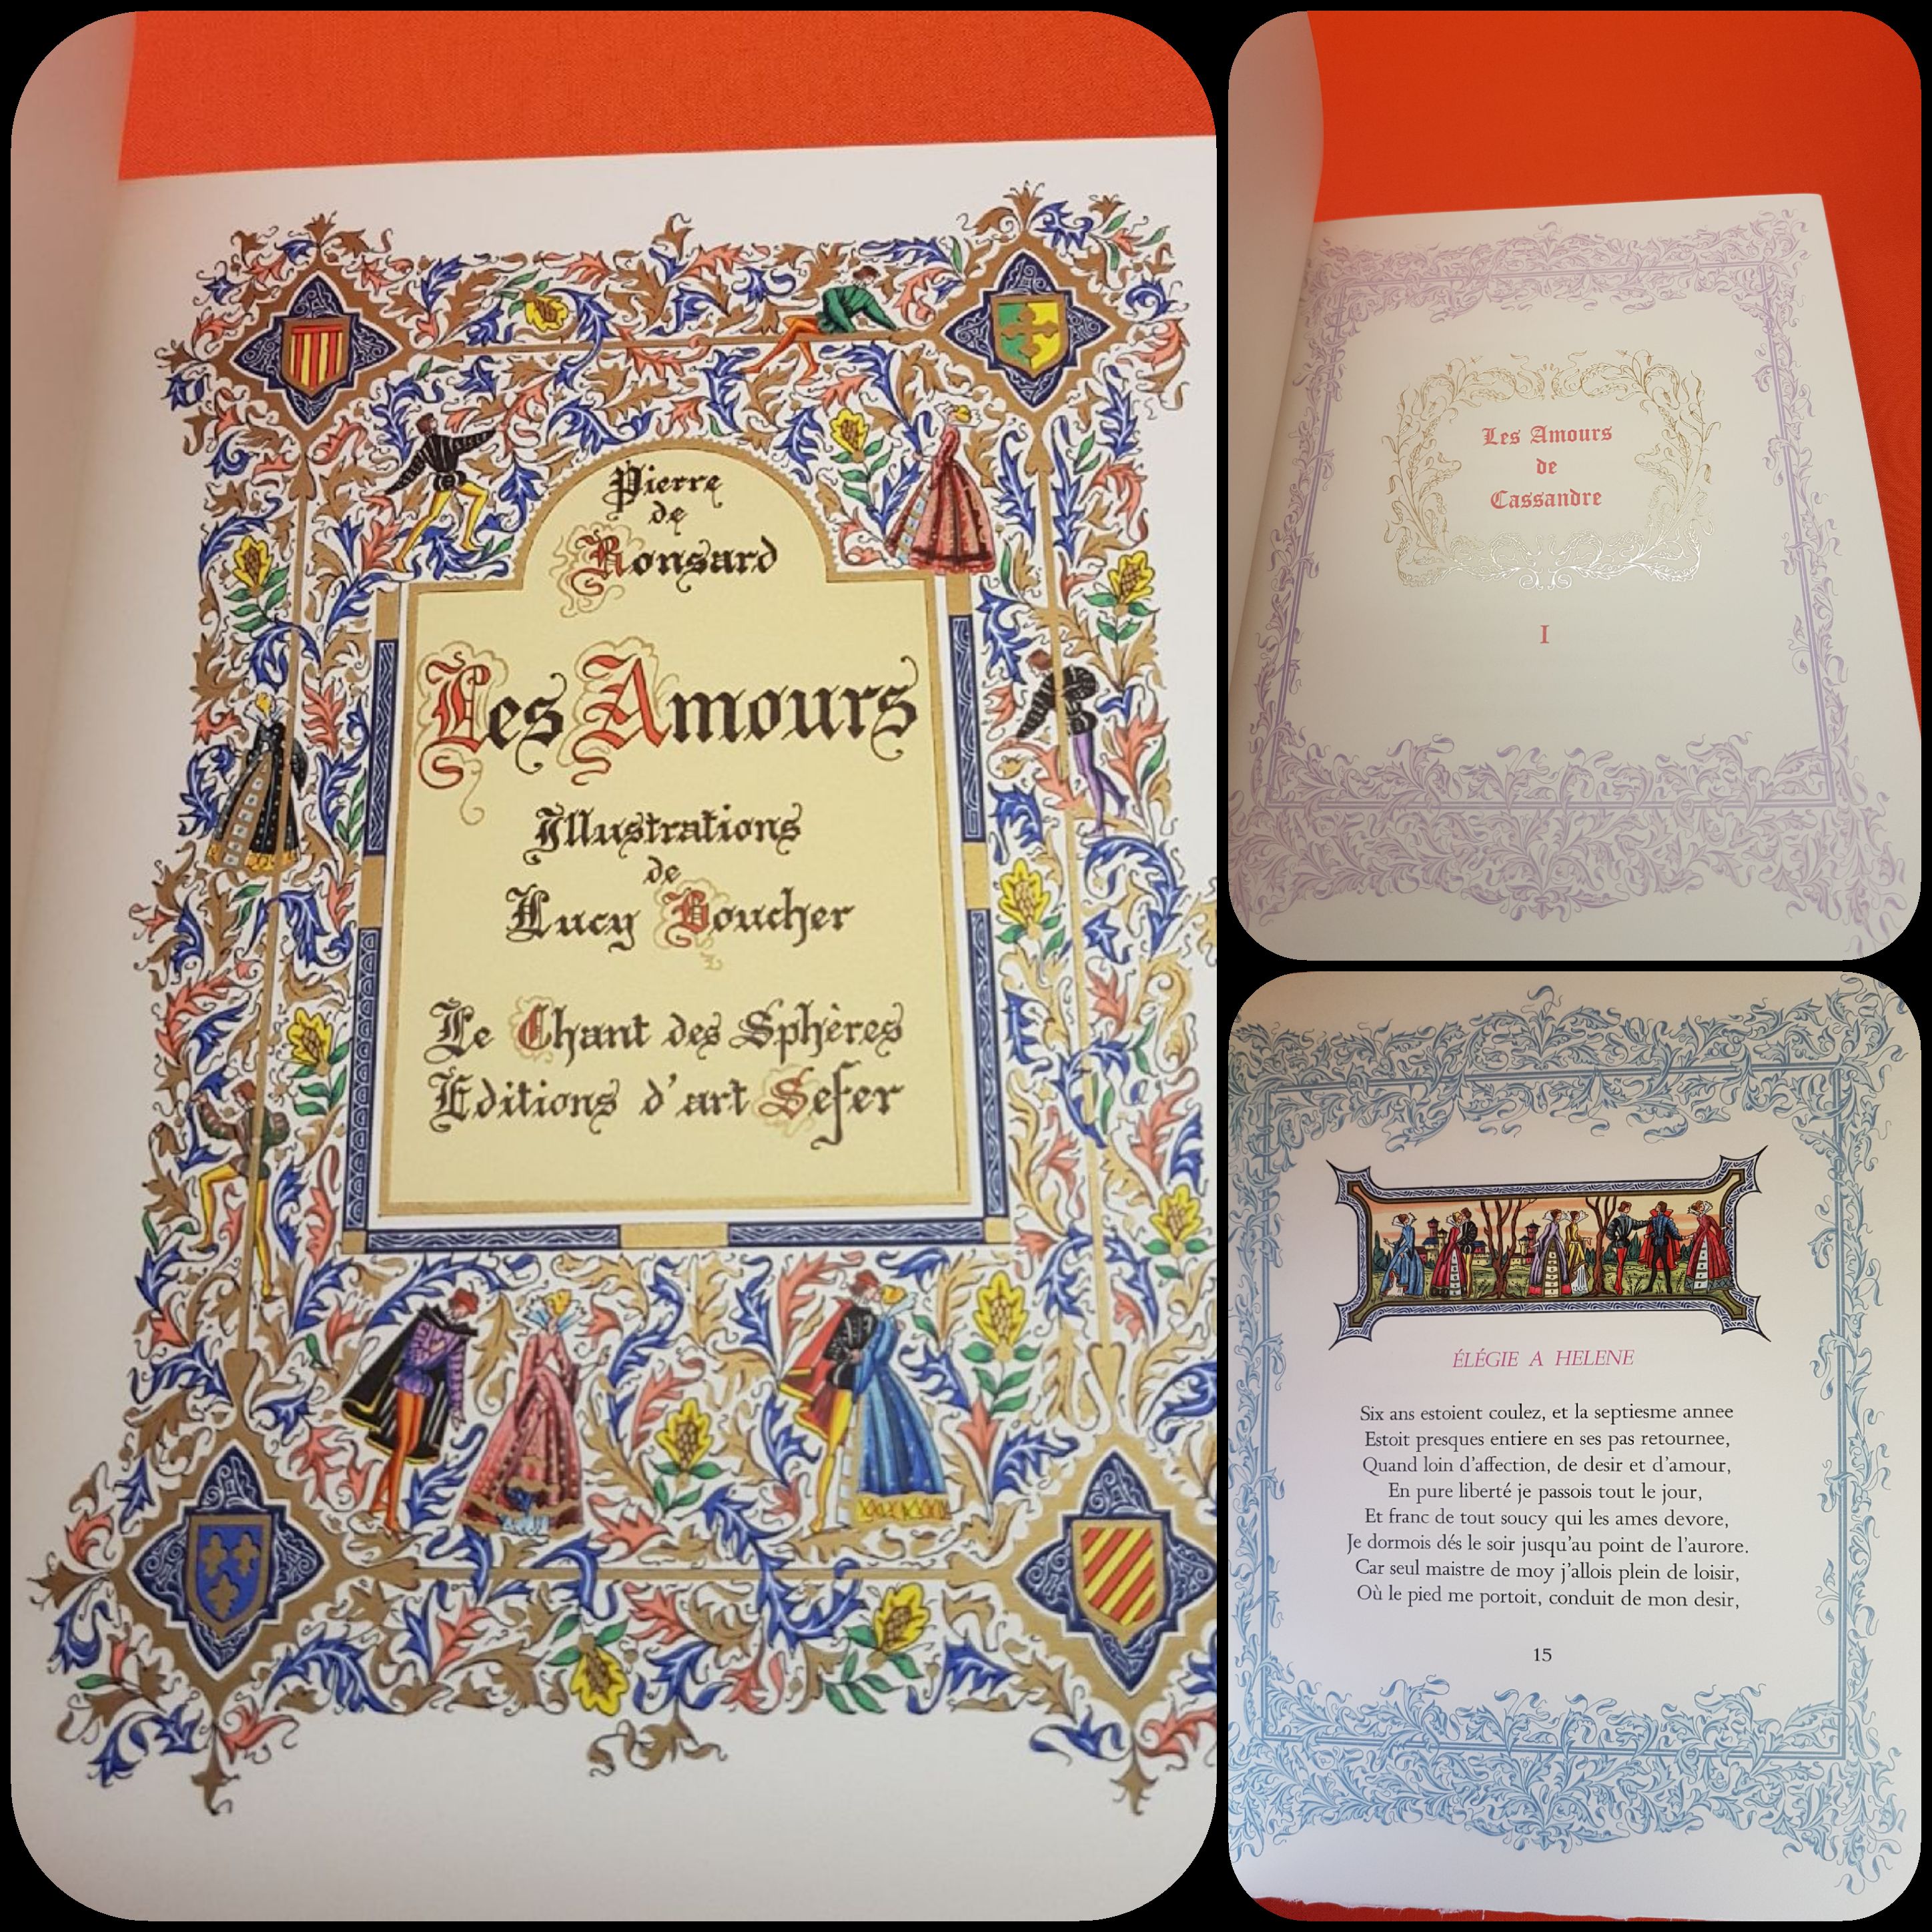 Pierre
de
Ronsard
Les Amours
Illustrations
de
Lucy Boucher
Le Chant des Sphères
Editions d'art Sefer
Les Amours
de
Cassandre
I
ÉLÉGIE A HELENE
Six ans estoient coulez, et la septiesme annee
Estoit presques entiere en ses pas retournee,
Quand loin d'affection, de desir et d'amour,
En pure liberté je passois tout le jour,
Et franc de tout soucy qui les ames devore,
Je dormois dés le soir jusqu'au point de l'aurore.
Car seul maistre de moy j'allois plein de loisir,
Où le pied me portoit, conduit de mon desir,
15